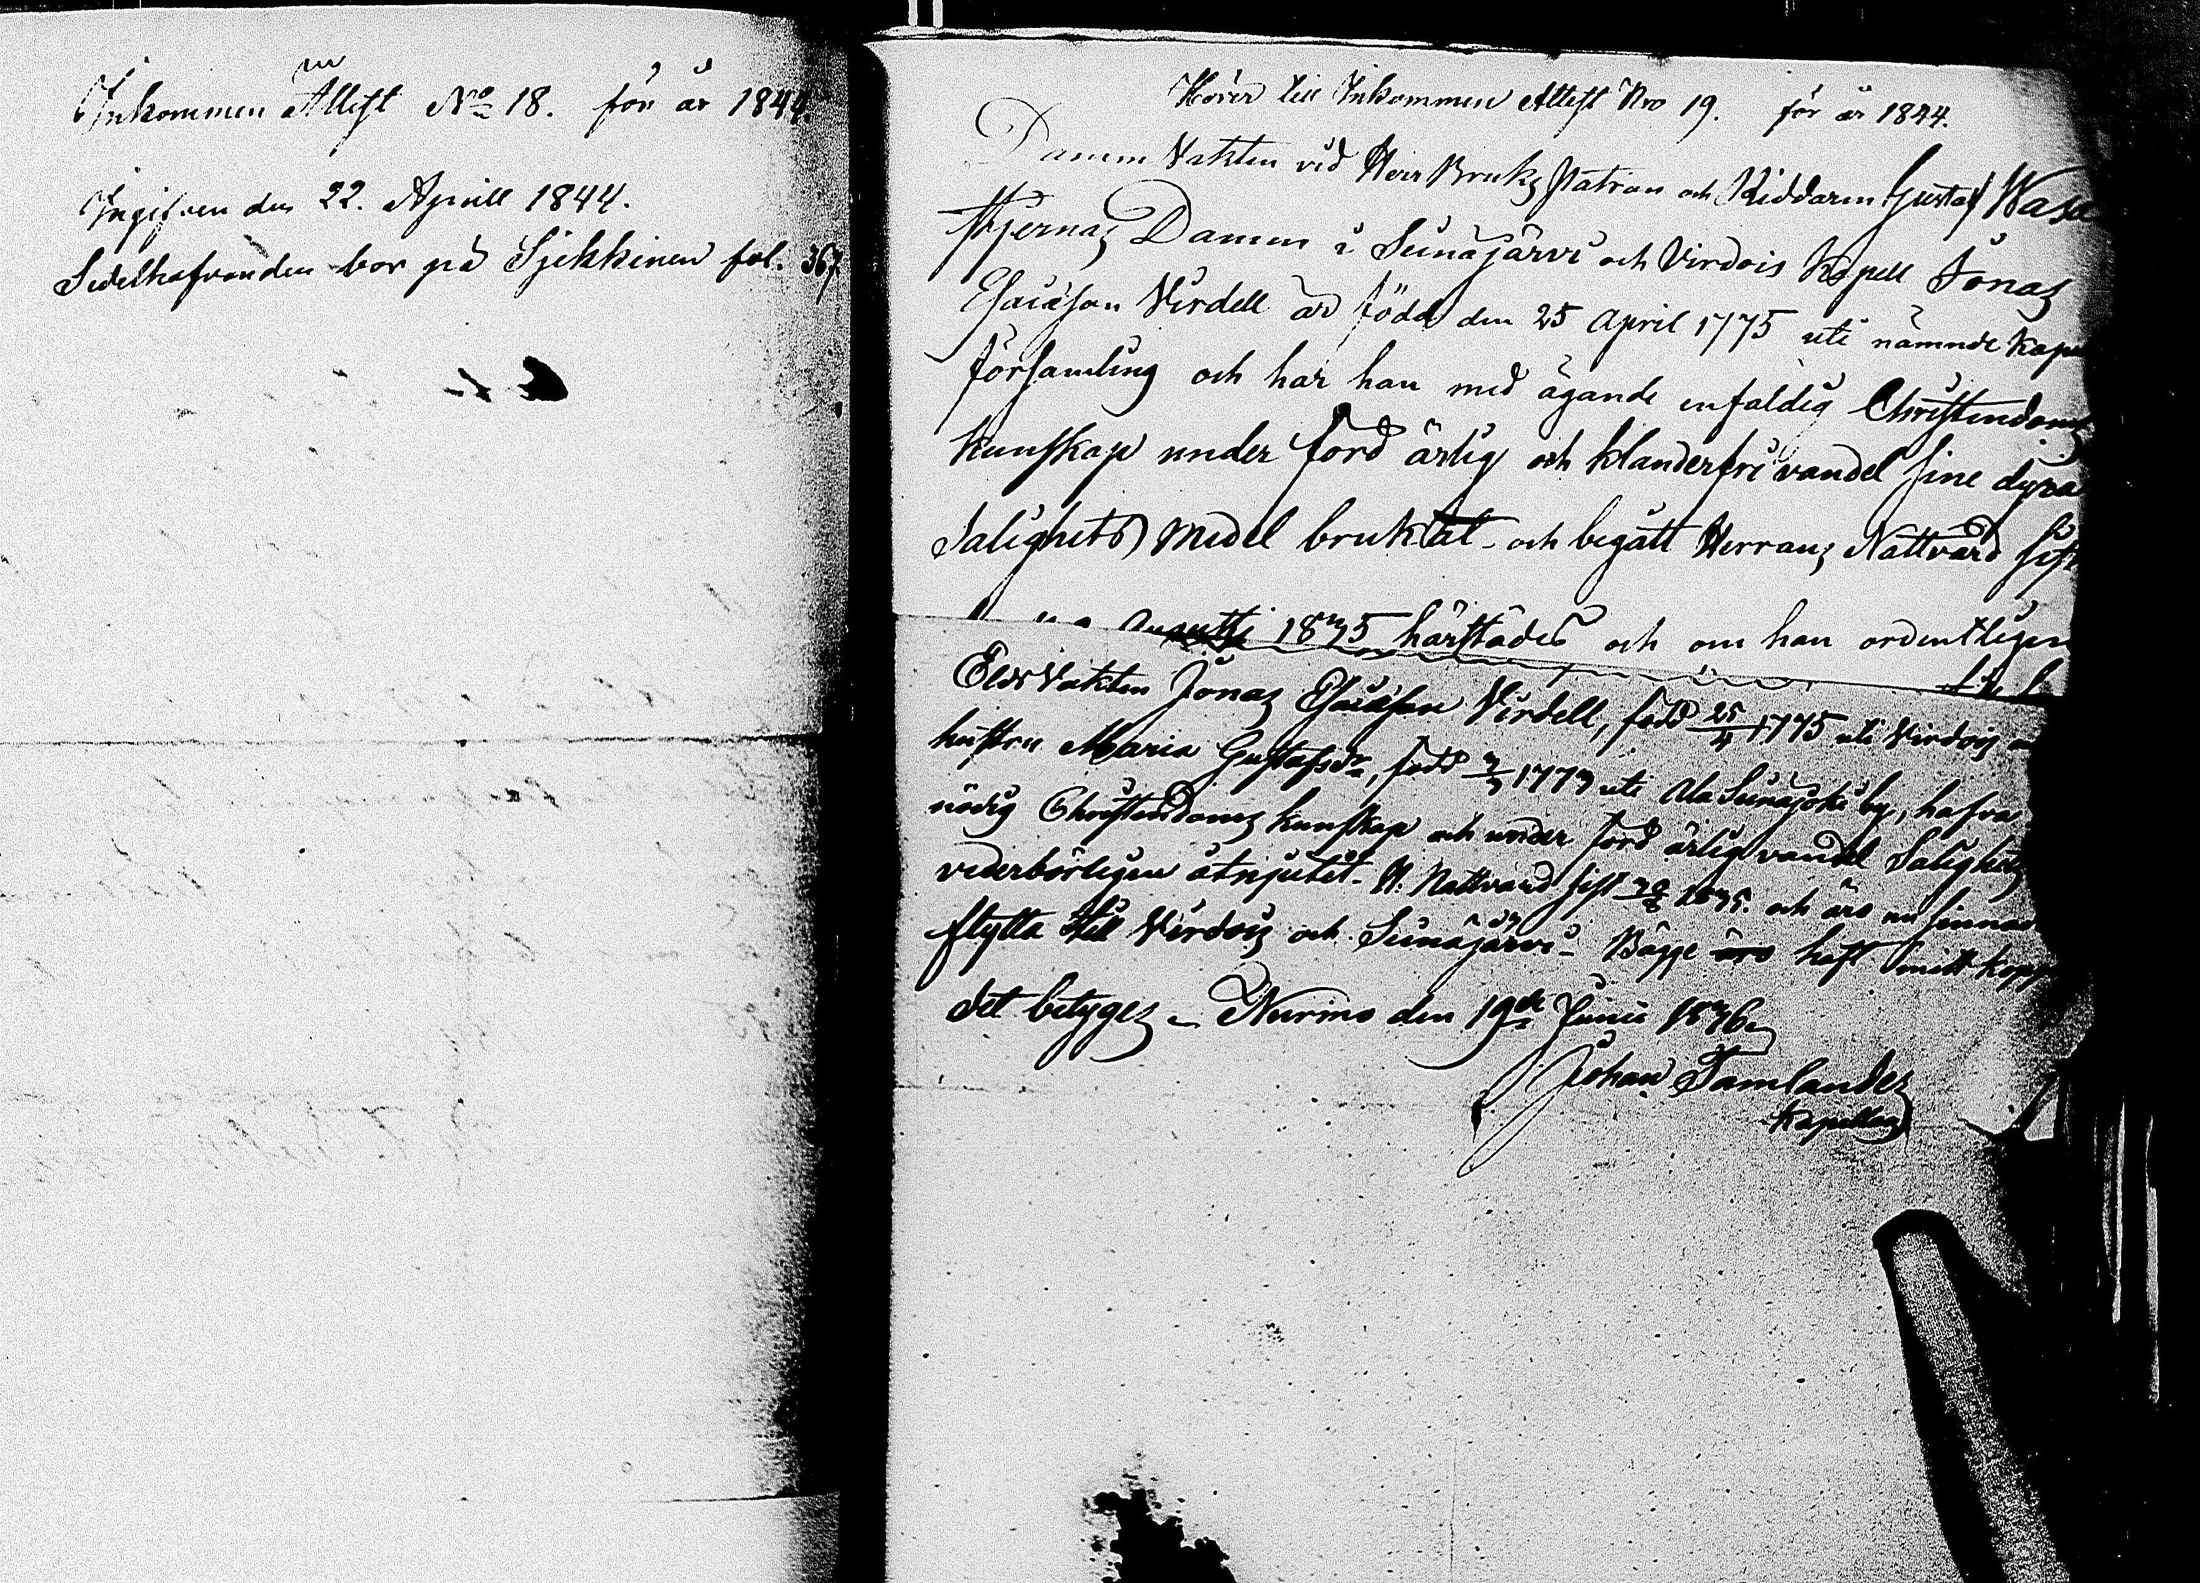 Inkommen Attest No 18. för år 1844.
Ingifven den 22. Aprill 1844.
Sedelhafvanden bor på Sjekkinen fol. 367.
Hörer till Inkommen Attest Nro 19. för år 1844.
Damm Vakten vid Herr Bruks Patron och Riddaren Gustaf Wasa
stjernas Damm i Seinäjärvi och Virdois Kapell Jonas
Esaiasson Virdell är född den 25 April 1775 uti nämnde Kapell
församling och har han med ägande enfaldig Christendoms
kunskap under förd ärlig och klanderfri vandel sine dyra
Salighets medel bruktat och begått Herrans Nattvard sist
Augusti 1835 härstädes och om han ordentligen
Eldvakten Jonas Esaiasson Virdell, född 25/4 1775 uti Virdois
hustru Maria Gustafsdr, född 3/3 1773 uti Ala Seinäjoki by, hafva
nödig Christendoms kunskap och under förd ärlig vandel Salighets
vederbörligen åtnjutit. H. Nattvard sist 30/8 1835. och äro nu sinnade
flytta till Virdois och Seinäjärvi. Bägge äro haft mitt kopp
det betyges Nurmo den 19de Junii 1836
Johan Tamlander
Kapellan